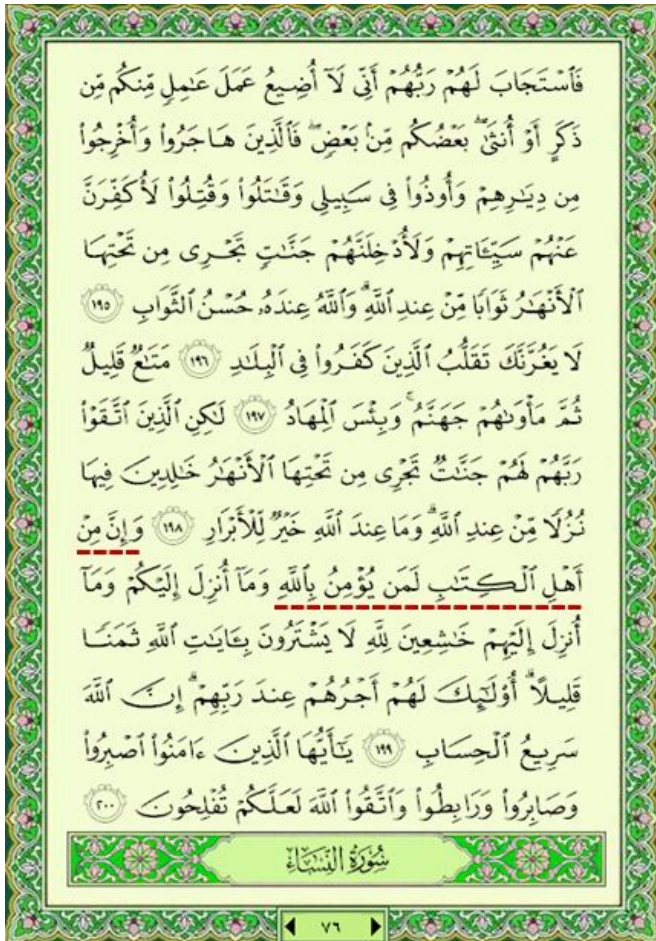 فَٱسْتَجَابَ لَهُمْ رَبُّهُمْ أَنِّى لَآ أُضِيعُ عَمَلَ عَـٰمِلٍ مِّنكُم مِّن
ذَكَرٍ أَوْ أُنثَىٰ ۖ بَعْضُكُم مِّنۢ بَعْضٍ ۖ فَٱلَّذِينَ هَاجَرُوا۟ وَأُخْرِجُوا۟
مِن دِيَـٰرِهِمْ وَأُوذُوا۟ فِى سَبِيلِى وَقَـٰتَلُوا۟ وَقُتِلُوا۟ لَأُكَفِّرَنَّ
عَنْهُمْ سَيِّـَٔاتِهِمْ وَلَأُدْخِلَنَّهُمْ جَنَّـٰتٍ تَجْرِى مِن تَحْتِهَا
ٱلْأَنْهَـٰرُ ثَوَابًا مِّنْ عِندِ ٱللَّهِ ۗ وَٱللَّهُ عِندَهُۥ حُسْنُ ٱلثَّوَابِ ١٩٥
لَا يَغُرَّنَّكَ تَقَلُّبُ ٱلَّذِينَ كَفَرُوا۟ فِى ٱلْبِلَـٰدِ ١٩٦ مَتَـٰعٌ قَلِيلٌ
ثُمَّ مَأْوَىٰهُمْ جَهَنَّمُ ۚ وَبِئْسَ ٱلْمِهَادُ ١٩٧ لَـٰكِنِ ٱلَّذِينَ ٱتَّقَوْا۟
رَبَّهُمْ لَهُمْ جَنَّـٰتٌ تَجْرِى مِن تَحْتِهَا ٱلْأَنْهَـٰرُ خَـٰلِدِينَ فِيهَا
نُزُلًا مِّنْ عِندِ ٱللَّهِ ۗ وَمَا عِندَ ٱللَّهِ خَيْرٌ لِّلْأَبْرَارِ ١٩٨ وَإِنَّ مِنْ
أَهْلِ ٱلْكِتَـٰبِ لَمَن يُؤْمِنُ بِٱللَّهِ وَمَآ أُنزِلَ إِلَيْكُمْ وَمَآ
أُنزِلَ إِلَيْهِمْ خَـٰشِعِينَ لِلَّهِ لَا يَشْتَرُونَ بِـَٔايَـٰتِ ٱللَّهِ ثَمَنًا
قَلِيلًا ۗ أُو۟لَـٰٓئِكَ لَهُمْ أَجْرُهُمْ عِندَ رَبِّهِمْ ۗ إِنَّ ٱللَّهَ
سَرِيعُ ٱلْحِسَابِ ١٩٩ يَـٰٓأَيُّهَا ٱلَّذِينَ ءَامَنُوا۟ ٱصْبِرُوا۟
وَصَابِرُوا۟ وَرَابِطُوا۟ وَٱتَّقُوا۟ ٱللَّهَ لَعَلَّكُمْ تُفْلِحُونَ ٢٠٠
سُورَةُ النِّسَاءِ
٧٦